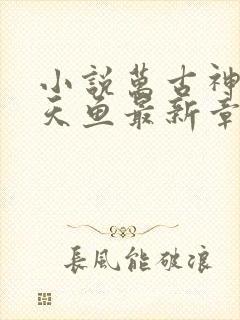 小說萬古神
天魚最新章
長風能破浪